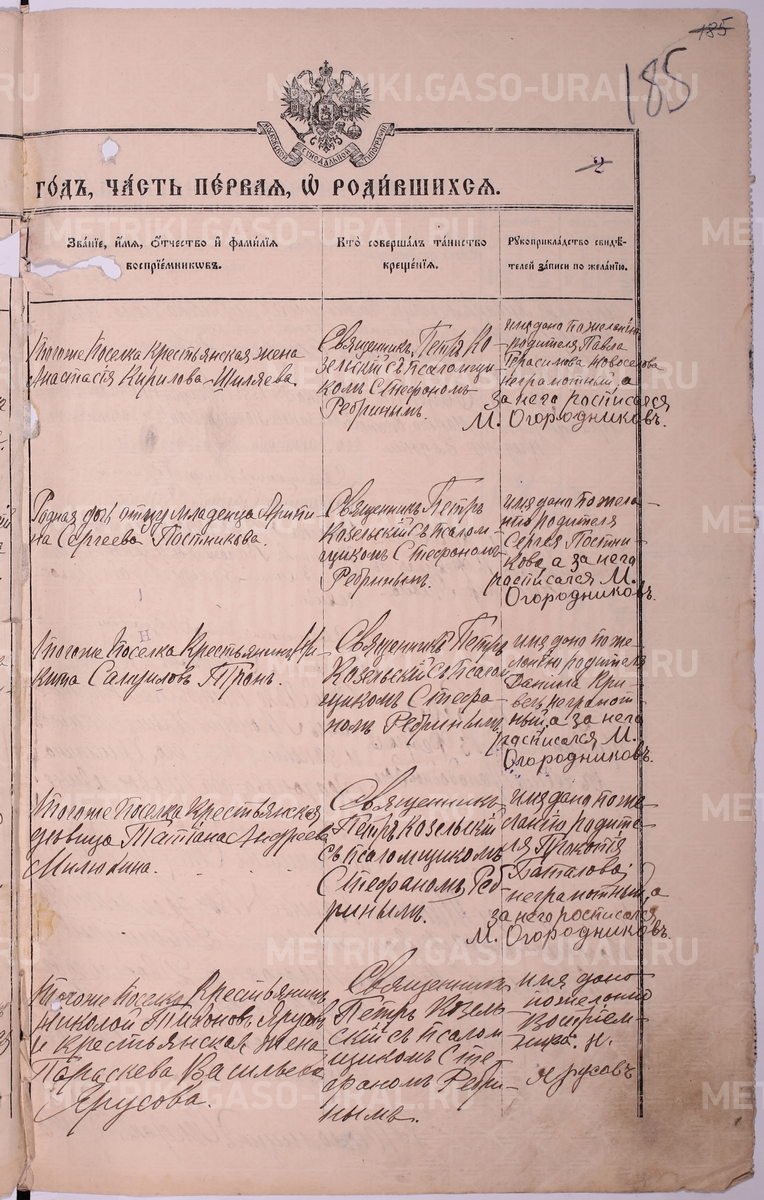 185
185
МОСКОВСКОЙ СѴНОДАЛЬНОЙ ТИПОГРАФІИ
2
го́дъ, ча́сть пе́рваѧ, ѡ҆ роди́вшихсѧ.
Зва́нїе, и҆́мѧ, ѻ҆́тчество и҆ фами́лїѧ
воспрїе́мникωвъ.
Кто̀ соверша́лъ та́инство
креще́нїѧ.
Рꙋкоприкла́дство свидѣ́-
телей за́писи по жела́нїю.
Тогоже Поселка Крестьянская жена
Анастасія Кирилова Шиляева.
Священникъ Петръ Ко
зельскій съ псаломщи
комъ Стефаномъ
Ребринымъ.
имя дано по желанію
родителя Павла
Герасимова Новоселова
неграмотный, а
за него росписался
М. Огородниковъ.
Родная дочь отцу младенца
Сергеева Постникова.
Священникъ Петръ
Козельскій съ псалом
щикомъ Стефаномъ
Ребринымъ.
имя дано по жела-
нію родителя
Сергея Постни-
кова, а за него
расписался М.
Огородниковъ.
Тогоже Поселка Крестьянинъ Ни-
кита Троян.
Священникъ Петръ
Козельскій съ псалом
щикомъ Стефа-
номъ Ребринымъ
имя дано по же-
ланію родителя
Даніила Кри-
вець неграмот-
ный, а за него
росписался М.
Огородниковъ.
Тогоже Поселка Крестьянская
девица Татіана Андреева
Милюхина.
Священникъ
Петръ Козельскій
съ псаломщикомъ
Стефаномъ Реб
ринымъ.
имя дано по же-
ланію родите-
ля Прокопія
Паталова,
неграмотный, а
за него росписался
М. Огородниковъ.
Тогоже Поселка Крестьянинъ
Николай Тихоновъ Ярусовъ
и крестьянская жена
Параскева Васильева
Ярусова.
Священникъ
Петръ Козель
скій съ псалом
щикомъ Сте
фаномъ Ребри-
нымъ.
имя дано
по желанію
Воспріем-
ника. Н.
Ярусовъ
METRIKI.GASO-URAL.RU